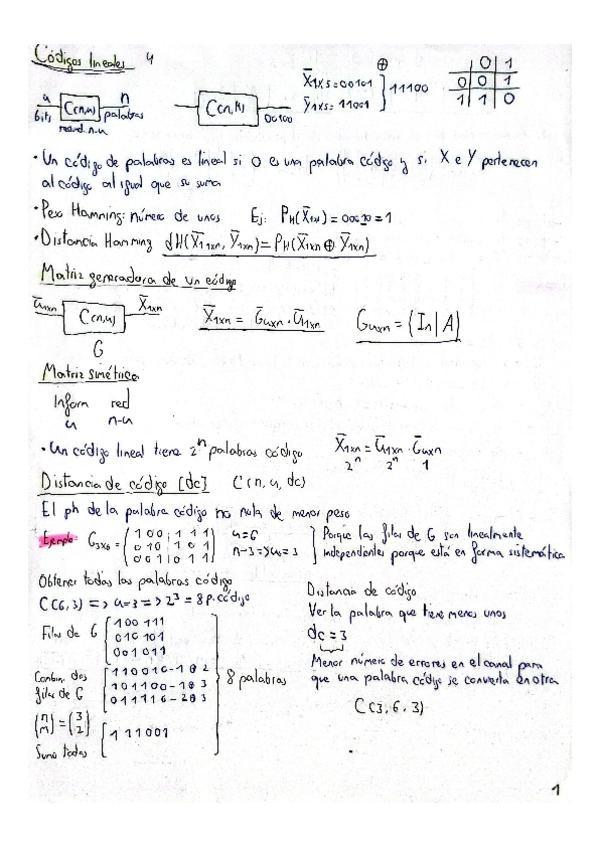 Códigos lineales 4
u C(n,u) n
bits palabras
redund. n-u
C(n,k) 00100
X̄1x5 = 00101
ȳ1x5 = 11001
⊕ } 11100
0 1
0 0 1
1 1 0
· Un código de palabras es lineal si 0 es una palabra código y si X e Y pertenecen
al código al igual que su suma
· Peso Hamming: número de unos Ej: PH(X̄1xn) = 00010 = 1
· Distancia Hamming dH(X̄1xn, Ȳ1xn) = PH(X̄1xn ⊕ Ȳ1xn)
Matriz generadora de un código
ū1xn C(n,u) X̄1xn
G
X̄1xn = Ḡuxn · ū1xn Guxn = (In | A)
Matriz simétrica
Inform red
u n-u
· Un código lineal tiene 2^n palabras código X̄1xn = ū1xn · Ḡuxn
2^n 2^n 1
Distancia de código [dc] C(n, u, dc)
El ph de la palabra código no nula de menor peso
Ejemplo G3x6 = (1 0 0 | 1 1 1
0 1 0 | 1 0 1
0 0 1 | 0 1 1)
n=6
n-3 => u=3
} Porque las filas de G son linealmente
independientes porque está en forma sistemática
Obtener todas las palabras código
C(6,3) => u=3 => 2^3 = 8 p. código
Filas de G
100 111
010 101
001 011
Combin. dos
filas de G
110010 - 1 @ 2
101100 - 1 @ 3
011110 - 2 @ 3
(n m) = (3 2)
Suma todas
111001
8 palabras
Distancia de código
Ver la palabra que tiene menos unos
dc = 3
Menor número de errores en el canal para
que una palabra código se convierta en otra
C(3, 6, 3)
1